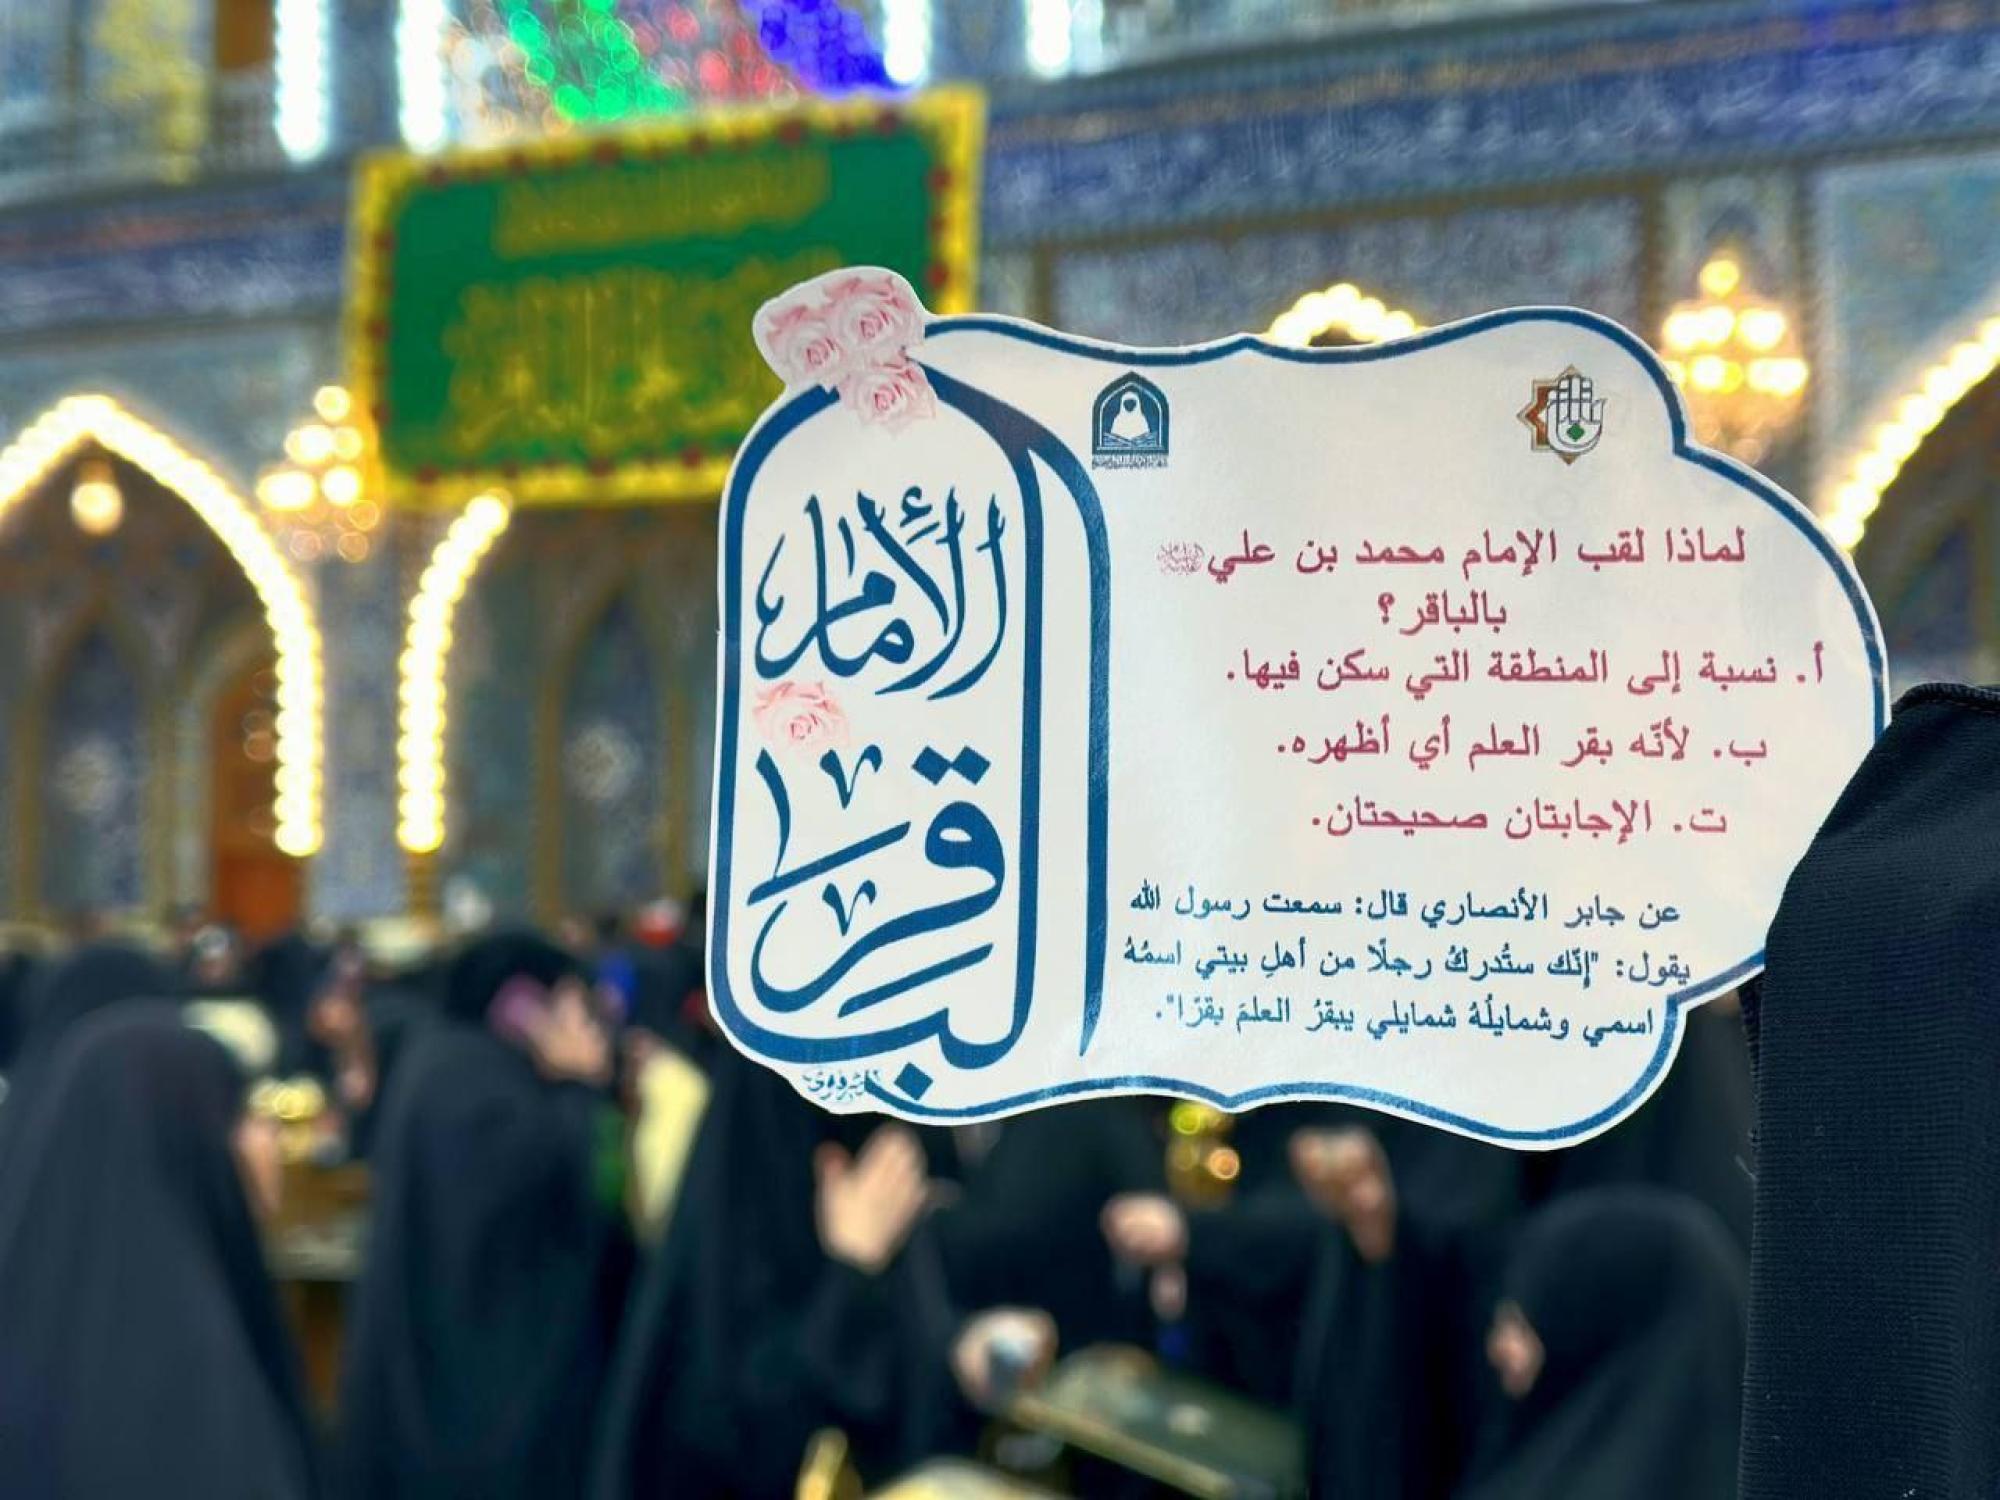 الإمام
الباقر
لماذا لقب الإمام محمد بن علي عليه السلام
بالباقر؟
أ. نسبة إلى المنطقة التي سكن فيها.
ب. لأنّه بقر العلم أي أظهره.
ت. الإجابتان صحيحتان.
عن جابر الأنصاري قال: سمعت رسول الله
يقول: "إنّك ستُدركُ رجلًا من أهلِ بيتي اسمُهُ
اسمي وشمايلُهُ شمايلي يبقرُ العلمَ بقرًا".